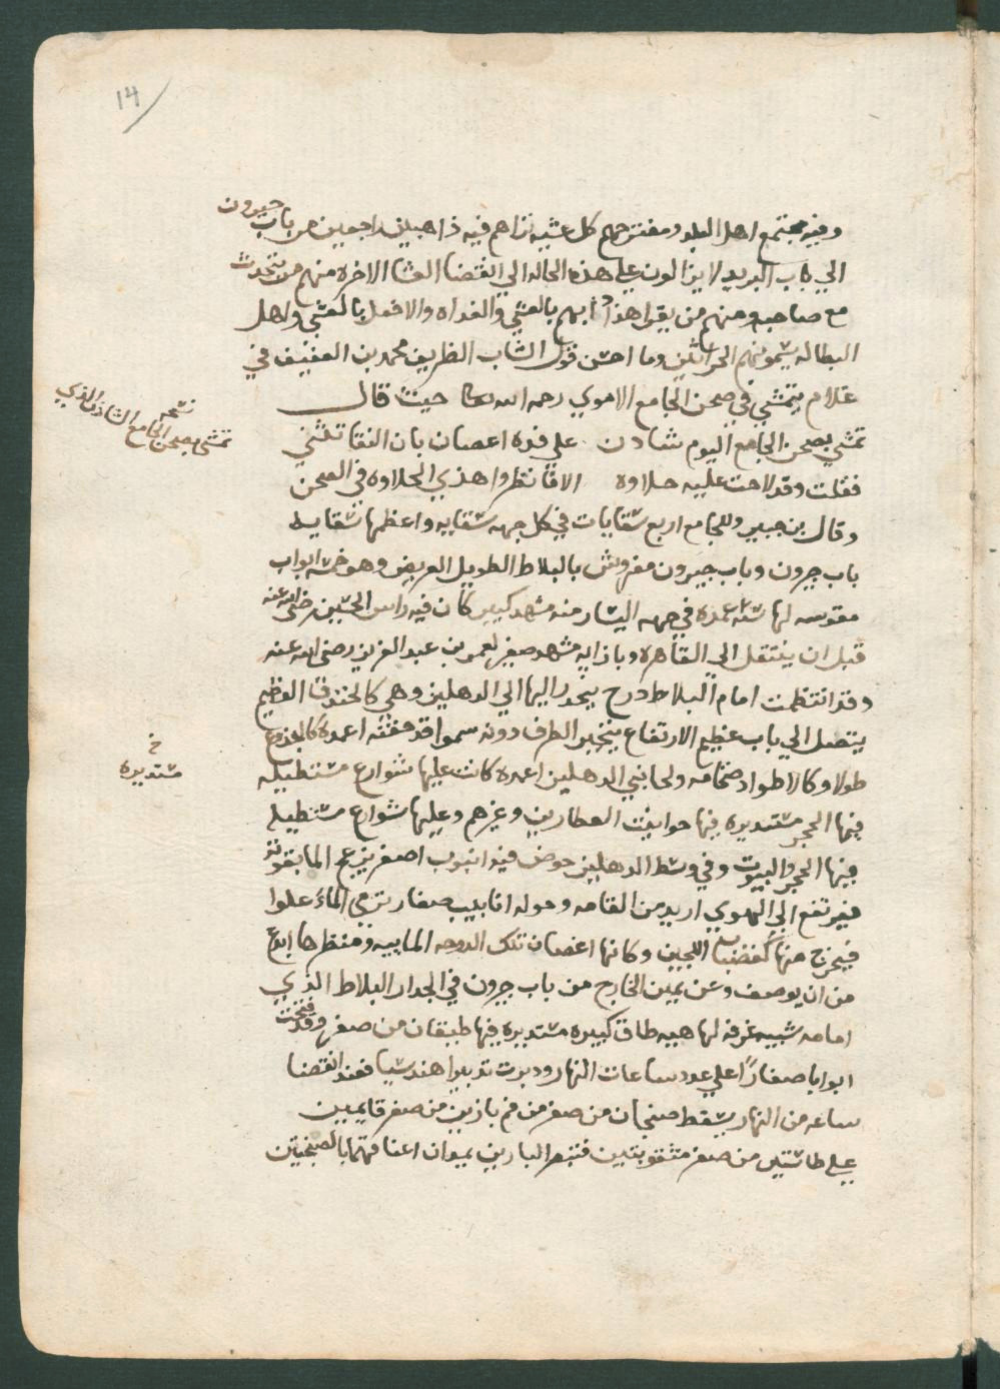 14
وفيه مجتمع اهل البلد ومفترجهم كل عشيه تراهم فيه ذاهبين راجعين من باب جيرون
الي باب البريد لا يزالون علي هذه الحاله الي انقضا العشا الاخره منهم من يتحدث
مع صاحبه ومنهم من يقرا هذا دابهم بالعشي والغداه والاحفل بالعشي واهل
البطاله يسمونهم الحراثين وما احسن قول الشاب الظريف محمد بن العفيف في
غلام يتمشي في صحن الجامع الاموي رحمه الله حيث قال
تمشي بصحن الجامع اليوم شادن علي قده اعصان بان النقا تثني
نسخه
تمشى بصحن الجامع الشادن الذي
فقلت وقد لاحت عليه حلاوه الا فانظروا هذي الحلاوه في الصحن
وقال بن جبير وللجامع اربع سقايات في كل جهه سقايه واعظمها سقايه
باب جيرون وباب جيرون مفروش بالبلاط الطويل العريض وهو خمسه ابواب
مقوسه لها سته اعمده في جهه اليسار منه مشهد كبير كان فيه راس الحسين رضي الله عنه
قبل ان ينتقل الي القاهره وبازايه مشهد صغير لعمر بن عبد العزيز رضي الله عنه
وقد انتظمت امام البلاط درج ينحدر اليها الي الدهليز وهي كالخندق العظيم
يتصل الي باب عظيم الارتفاع ينحسر الطرف دونه سموا قد حفته اعمدة كالجذوع
طولا وكالاطواد ضخامه ولجانبي الدهليز اعمده كانت عليها شوارع مستطيله
خ
مستديره
فيها الحجر مستديره فيها حوانيت العطارين وغيرهم وعليها شوارع مستطيله
فيها الحجر والبيوت وفي وسط الدهليز حوض فيه انبوب اصفر يزعج الما بقوة
فيرتفع الي الهوي ازيد من القامه وحوله انابيب صغار ترمي الماء علوا
فيخرج منها كقضبان اللجين وكانها اغصان تلك الدوحه الماييه ومنظرها ابدع
من ان يوصف وعن يمين الخارج من باب جيرون في الجدار البلاط الذي
امامه شبيه غرفه لها هييه طاق كبيره مستديره فيها طيقان من صفر وقد فتحت
ابوابا صغارًا علي عدد ساعات النهار ودبرت تدبيرا هندسيا فعند انقضا
ساعه من النهار يسقط صنجان من صفر من فم بازين من صفر قايمين
علي طاستين من صفر مثقوبتين فتبصر البازين يميلان اعناقهما بالصنجتين